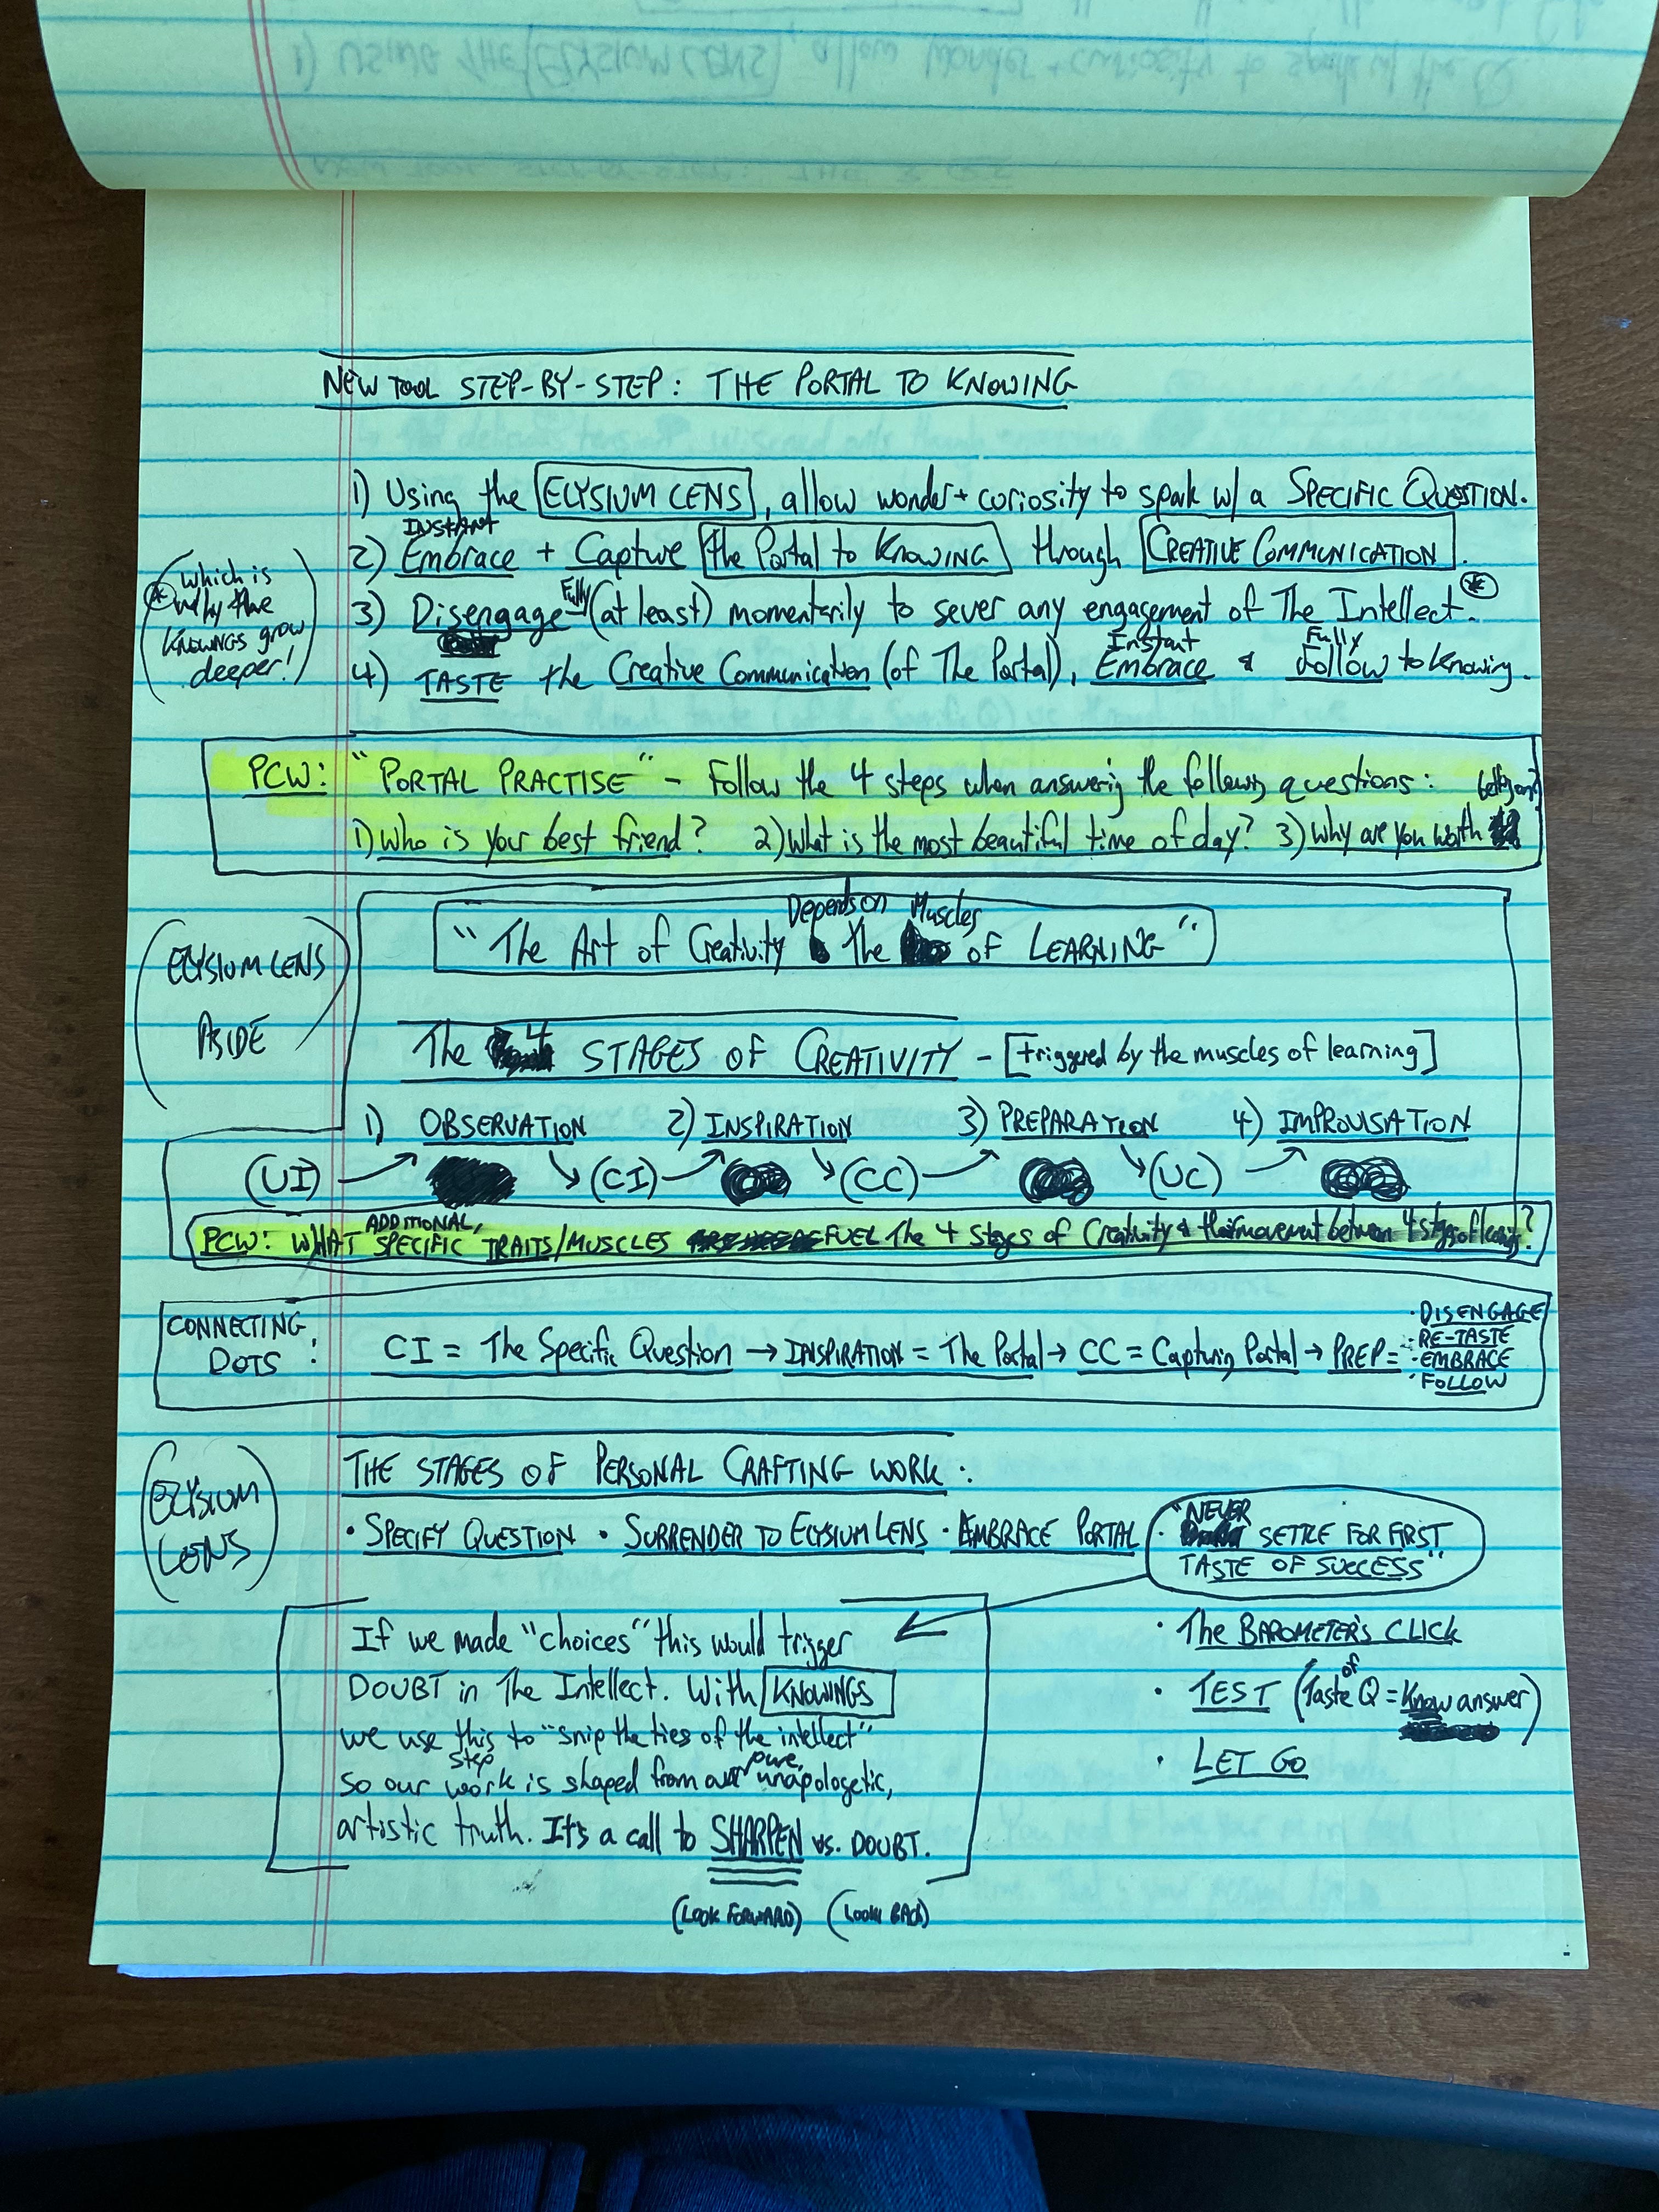 NEW TOOL STEP-BY-STEP: THE PORTAL TO KNOWING
1) Using the ELYSIUM LENS, allow wonder + curiosity to spark w/ a SPECIFIC QUESTION.
INSTANT
2) Embrace + Capture the Portal to KNOWING through CREATIVE COMMUNICATION.
3) Disengage Fully (at least) momentarily to sever any engagement of The Intellect. *
(* which is why the KNOWINGS grow deeper!)
Instant Fully
4) TASTE the Creative Communication (of The Portal), Embrace & Follow to Knowing.
PCW: "PORTAL PRACTISE" - Follow the 4 steps when answering the following questions:
1) Who is your best friend? 2) What is the most beautiful time of day? 3) Why are you worth betting on?
(ELYSIUM LENS ASIDE)
Depends on Muscles
"The Art of Creativity the of LEARNING"
The 4 STAGES OF CREATIVITY - [triggered by the muscles of learning]
1) OBSERVATION 2) INSPIRATION 3) PREPARATION 4) IMPROVISATION
(UI) → ↘ (CI) → ↘ (CC) → ↘ (UC) →
ADDITIONAL,
PCW: WHAT SPECIFIC TRAITS/MUSCLES FUEL The 4 stages of Creativity & their movement between 4 stages of learning?
CONNECTING DOTS: CI = The Specific Question → INSPIRATION = The Portal → CC = Capturing Portal → PREP =
· DISENGAGE
· RE-TASTE
· EMBRACE
· FOLLOW
(ELYSIUM LENS)
THE STAGES OF PERSONAL CRAFTING WORK:
· SPECIFY QUESTION · SURRENDER TO ELYSIUM LENS · EMBRACE PORTAL · "NEVER SETTLE FOR FIRST
TASTE OF SUCCESS"
If we made "choices" this would trigger
DOUBT in The Intellect. With KNOWINGS
we use this to "snip the ties of the intellect"
step pure,
so our work is shaped from unapologetic,
artistic truth. It's a call to SHARPEN vs. DOUBT.
(LOOK FORWARD) (LOOK BACK)
· The BAROMETER'S CLICK
· TEST (Taste of Q = Know answer)
· LET GO